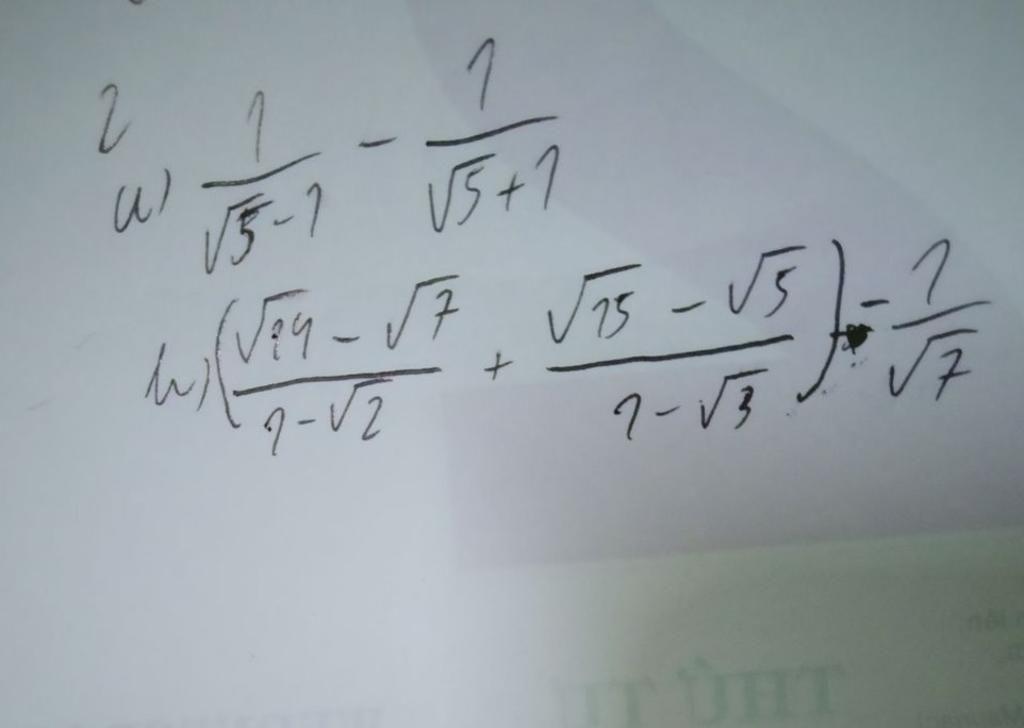 2
a) \frac{1}{\sqrt{5}-1} - \frac{1}{\sqrt{5}+1}
b) \left(\frac{\sqrt{14}-\sqrt{7}}{1-\sqrt{2}} + \frac{\sqrt{15}-\sqrt{5}}{1-\sqrt{3}}\right) - \frac{1}{\sqrt{7}}
THỨ TƯ